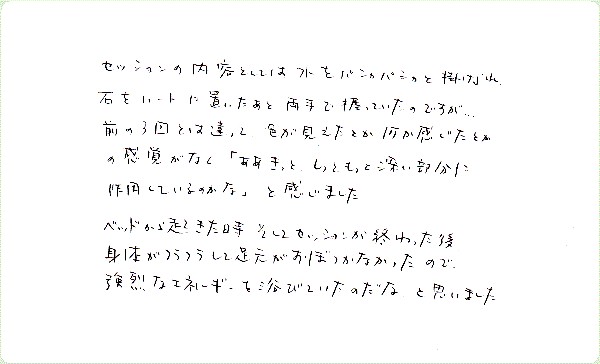 セッションの内容としては 水をバシャバシャと掛けられ、
石をハートに置いたあと 両手で握っていたのですが…
前の3回とは違って、色が見えたとか 何か感じたとか
の感覚がなく「ああきっと、もっともっと深い部分に
作用しているのかな」と感じました
ベッドから起きた時 そしてセッションが終わった後
身体がフラフラして足元がおぼつかなかったので、
強烈なエネルギーを浴びていたのだな と思いました